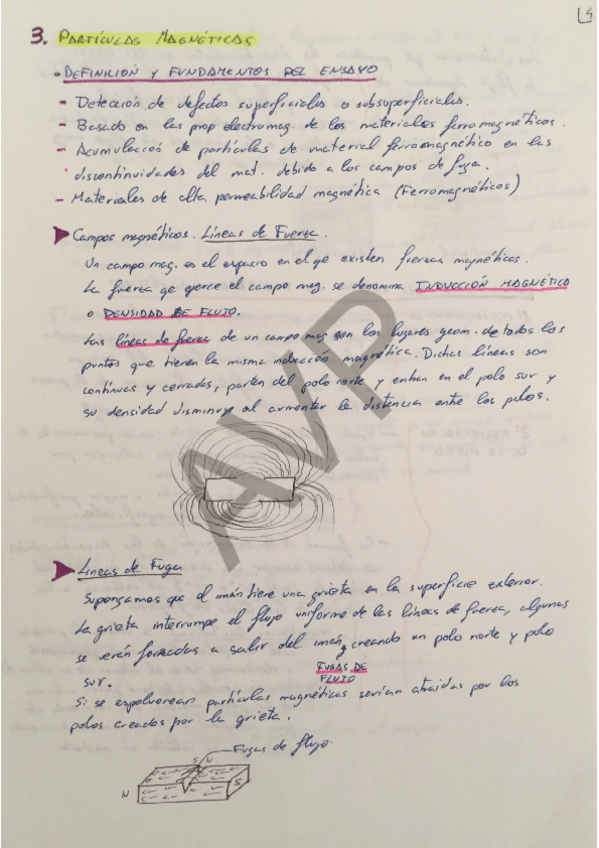 4
3. PARTÍCULAS MAGNÉTICAS
• DEFINICIÓN Y FUNDAMENTOS DEL ENSAYO
- Detección de defectos superficiales o subsuperficiales.
- Basado en las prop electromag. de los materiales ferromagnéticos.
- Acumulació de partículas de material ferromagnético en las
discontinuidades del mat. debido a los campos de fuga.
- Materiales de alta permeabilidad magnética (Ferromagnéticos)
Campos magnéticos. Líneas de Fuerza.
Un campo mag. es el espacio en el qe existen fuerzas magnéticas.
La fuerza qe ejerce el campo mag. se denomina INDUCCIÓN MAGNÉTICA
o DENSIDAD DE FLUJO.
Las líneas de fuerza de un campo mag son los lugares geom. de todos los
puntos que tienen la misma inducción magnética. Dichas líneas son
contínuas y cerradas, parten del polo norte y entran en el polo sur y
su densidad disminuye al aumentar la distancia entre los polos.
AVP
Líneas de Fuga
Supongamos que el imán tiene una grieta en la superficie exterior.
La grieta interrumpe el flujo uniforme de las líneas de fuerza, algunas
se verán forzadas a salir del imán, creando un polo norte y polo
FUGAS DE
FLUJO
sur.
Si se espolvorean partículas magnéticas serían atraídas por los
polos creados por la grieta.
Fugas de flujo.
S N
N S